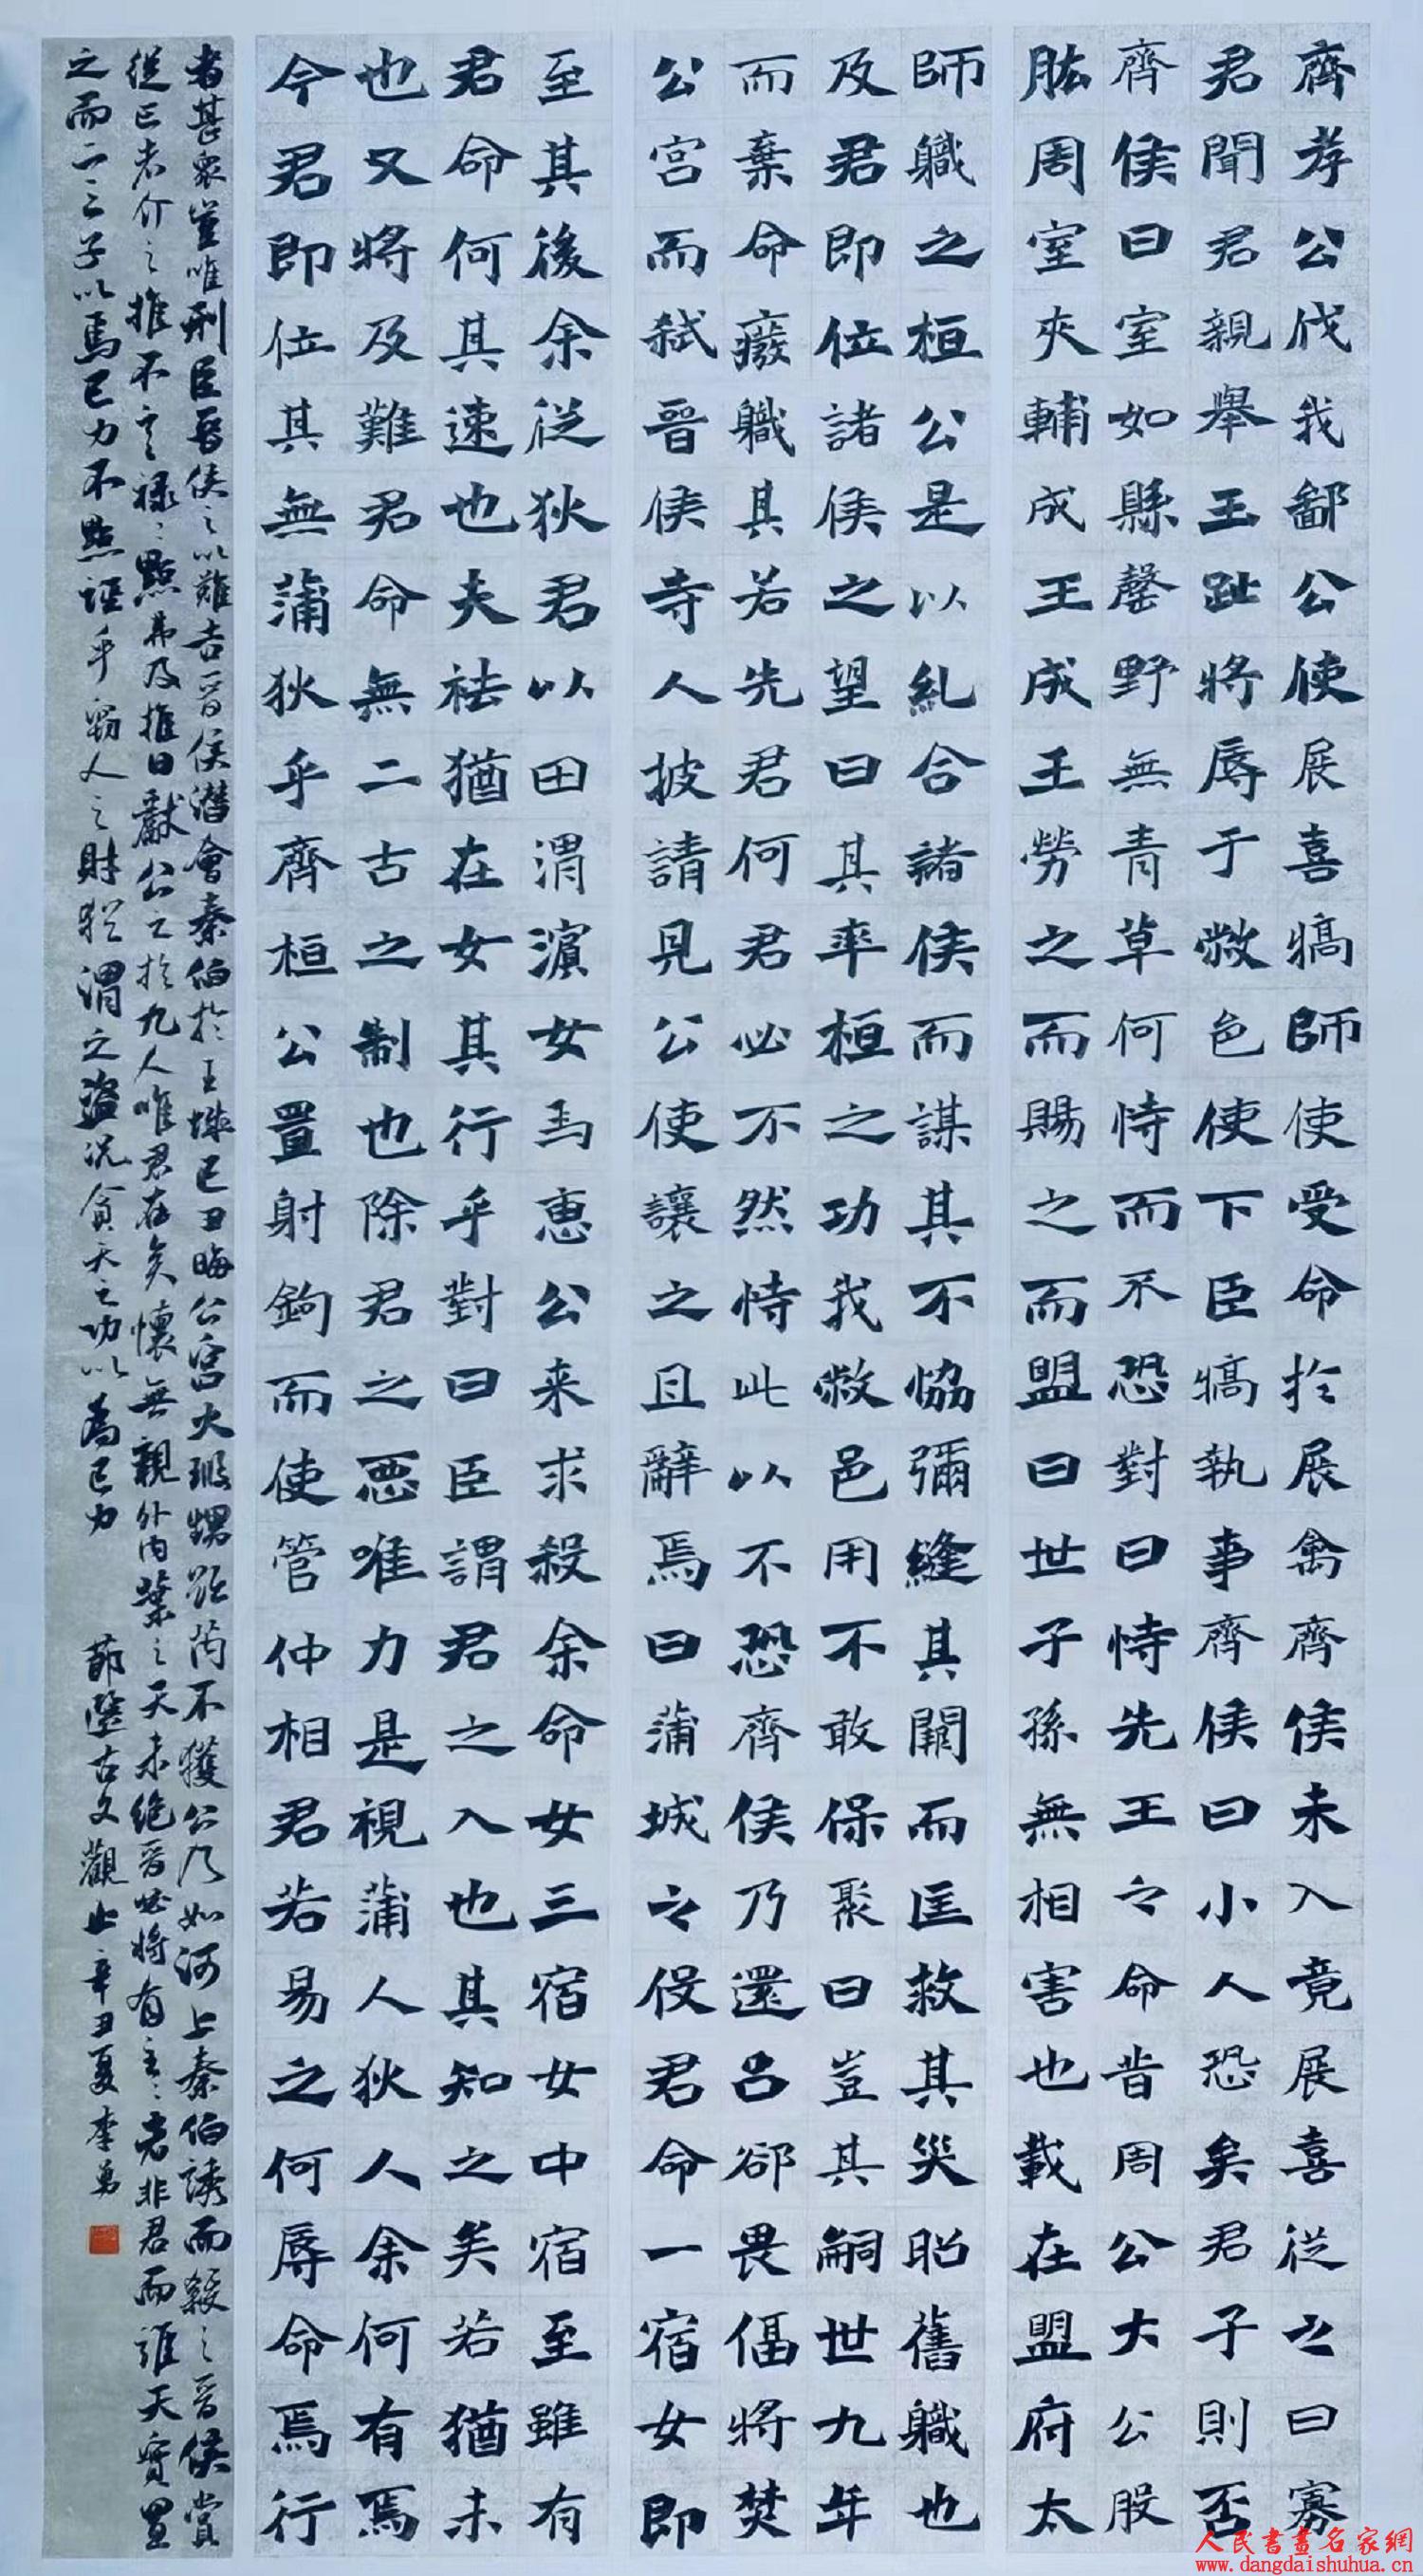 齊孝公伐我鄙公使展喜犒師使受命於展禽齊侯未入竟展喜從之曰寡
君聞君親舉玉趾將辱于敝邑使下臣犒執事齊侯曰小人恐矣君子則否
齊侯曰室如縣罄野無青草何恃而不恐對曰恃先王之命昔周公大公股
肱周室夾輔成王成王勞之而賜之而盟曰世子孫無相害也載在盟府太
師職之桓公是以糾合諸侯而謀其不協彌縫其闕而匡救其災昭舊職也
及君即位諸侯之望曰其率桓之功我敝邑用不敢保聚曰豈其嗣世九年
而棄命廢職其若先君何君必不然恃此以不恐齊侯乃還呂郤畏偪將焚
公宮而弒晉侯寺人披請見公使讓之且辭焉曰蒲城之役君命一宿女即
至其後余從狄君以田渭濱女為惠公来求殺余命女三宿女中宿至雖有
君命何其速也夫袪猶在女其行乎對曰臣謂君之入也其知之矣若猶未
也又將及難君命無二古之制也除君之惡唯力是視蒲人狄人余何有焉
今君即位其無蒲狄乎齊桓公置射鉤而使管仲相君若易之何辱命焉行
者甚眾豈唯刑臣晉侯之以難告晉侯潛會秦伯於王城己丑晦公宮火瑕甥郤芮不獲公乃如河上秦伯誘而殺之晉侯賞
從亡者介之推不言祿〻弗及推曰獻公之於九人唯君在矣懷無親外内棄之天未絕晉必將有主〻者非君而誰天實置
之而二三子以為己力不誣乎竊人之財猶謂之盜況貪天之功以為己力 節鑒古文觀止辛丑夏李勇
人民書畫名家網
www.dangdaishuhua.cn